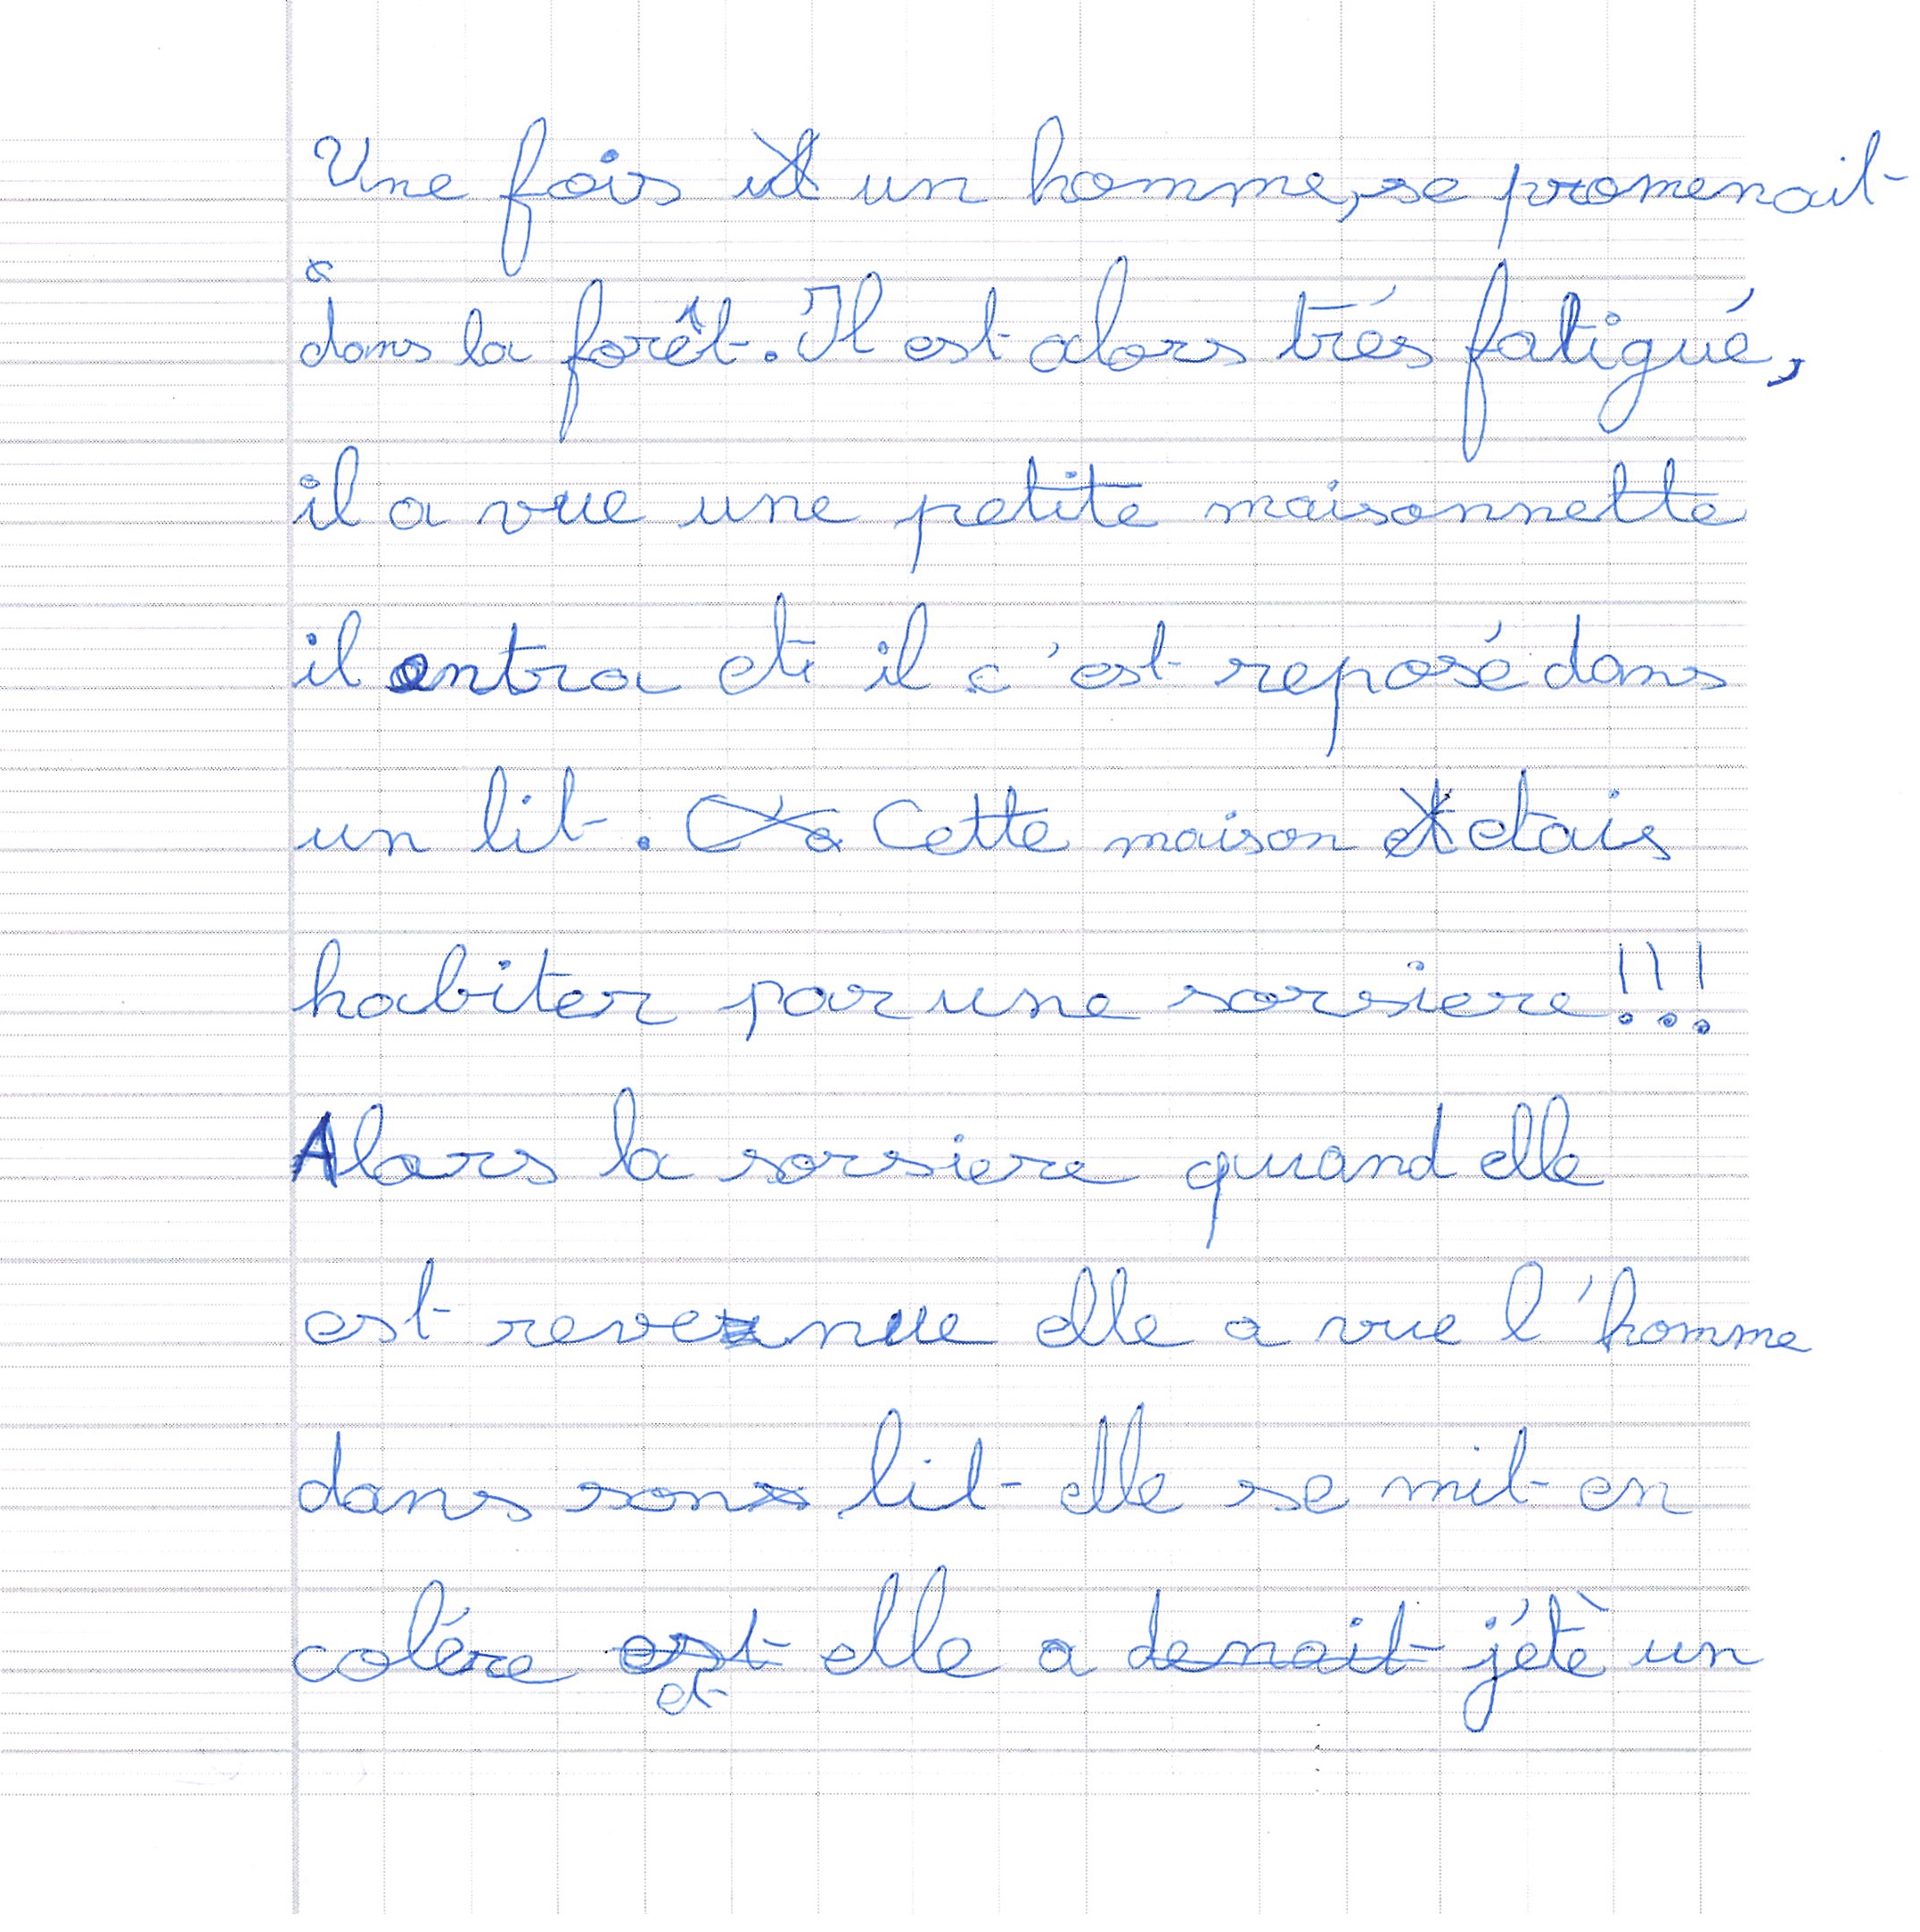 Une fois un homme, se promenait
dans la forêt. Il est alors trés fatigué,
il a vue une petite maisonnette
il entra et il c'est reposé dans
un lit. Cette maison etais
habiter par une sorsiere!!!
Alors la sorsiere quand elle
est revenue elle a vue l'homme
dans son lit elle se mit en
colére et elle a jétè un